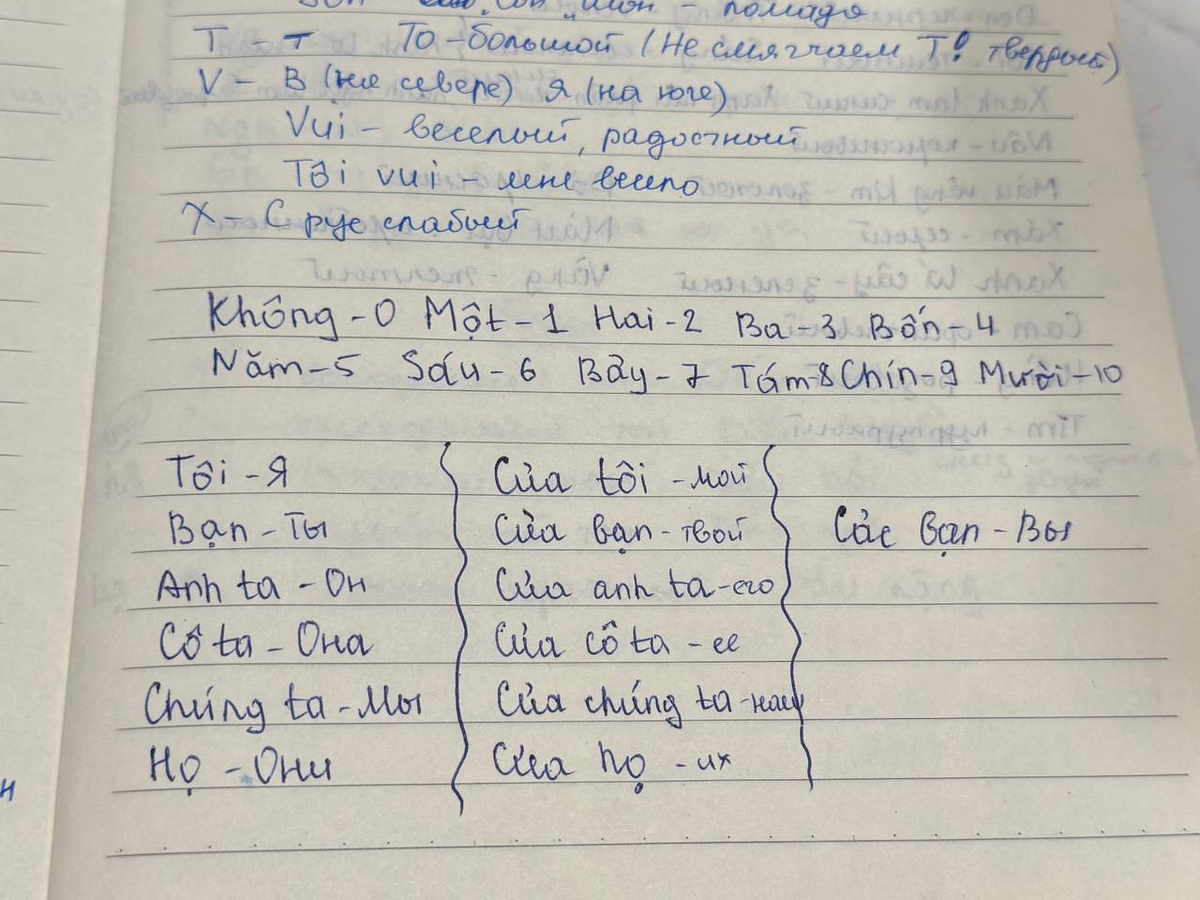 Son son môi - помада
T - т To - большой (Не смягчаем Т! твердый)
V - В (на севере) Я (на юге)
Vui - веселый, радостный
Tôi vui - мне весело
X - С рус слабый
Không - 0 Một - 1 Hai - 2 Ba - 3 Bốn - 4
Năm - 5 Sáu - 6 Bảy - 7 Tám 8 Chín - 9 Mười - 10
Tôi - Я Của tôi - мой
Bạn - Ты Của bạn - твой Các bạn - Вы
Anh ta - Он Của anh ta - его
Cô ta - Она Của cô ta - ее
Chúng ta - Мы Của chúng ta - наш
Họ - Они Của họ - их
н